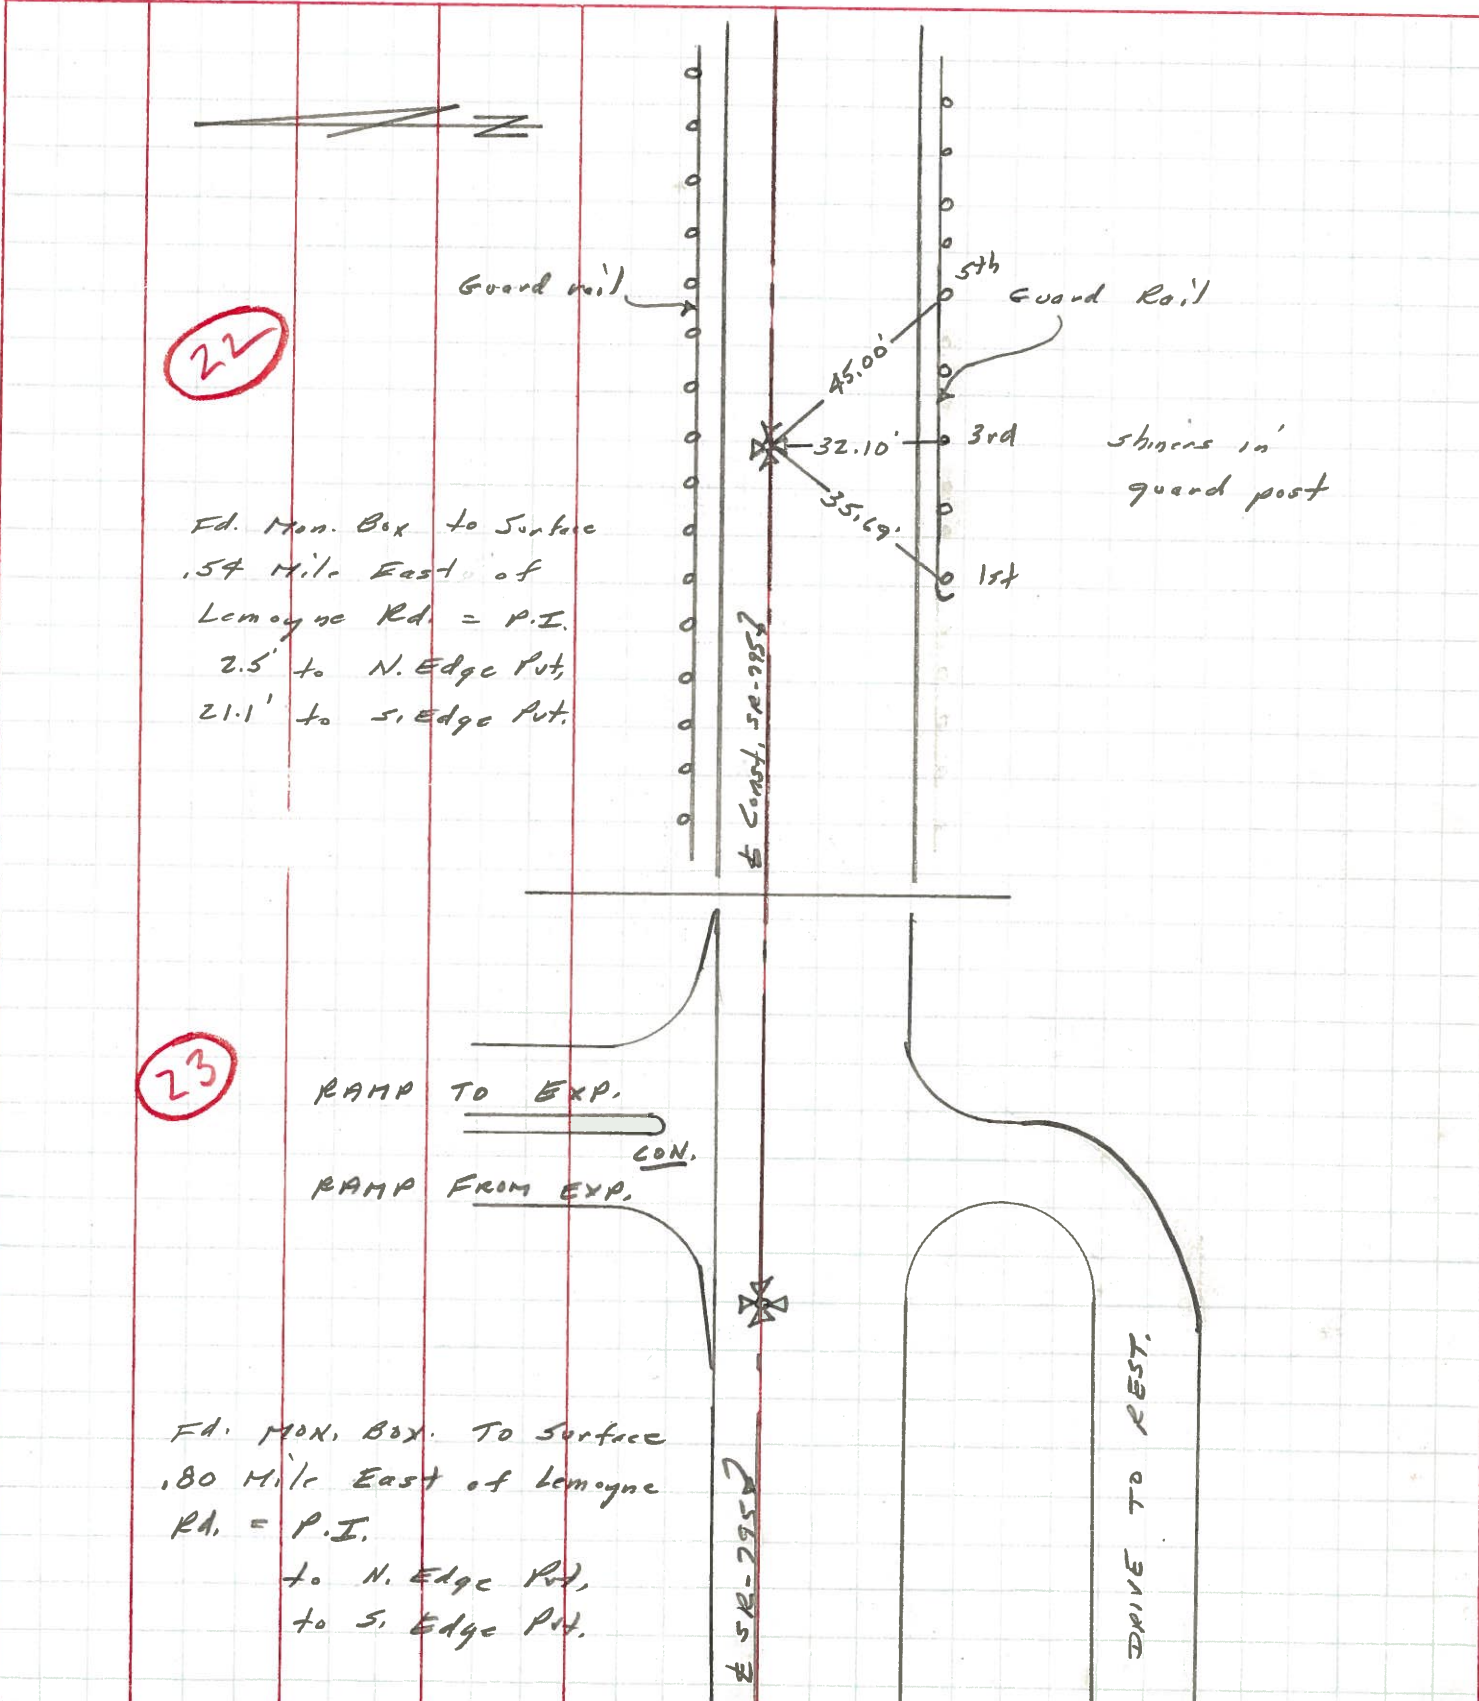 N
5th
Guard rail
Guard Rail
22
45.00'
32.10'
3rd
shiners in
guard post
35.69'
1st
Fd. Mon. Box to Surface
.54 Mile East of
Lemoyne Rd. = P.I.
2.5' to N. Edge Pvt.
21.1' to S. Edge Pvt.
℄ Const. SR-795
23
RAMP TO EXP.
CON.
RAMP FROM EXP.
Fd. MON. BOX. TO Surface
.80 Mile East of Lemoyne
Rd. = P.I.
to N. Edge Pvt.
to S. Edge Pvt.
℄ SR-795
DRIVE TO REST.